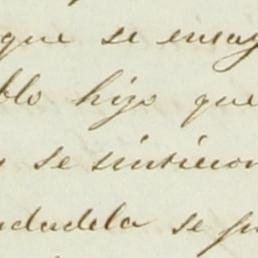 que se ensay
blo hizo que
se sintieron
ndadela se pu